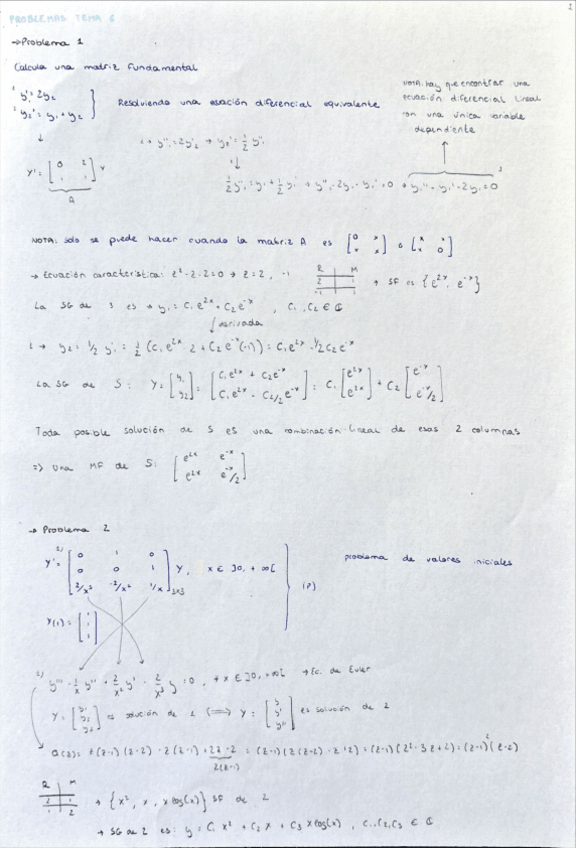 2
PROBLEMAS TEMA 6
→ Problema 1
Calcula una matriz fundamental
y₁' = 2y₂
y₂' = y₁ + y₂
Resolviendo una ecuación diferencial equivalente
NOTA: hay que encontrar una
ecuación diferencial lineal
con una única variable
dependiente
Y' = [0 2; 1 1] Y
A
1 → y₁'' = 2y₂' → y₂' = 1/2 y₁''
1/2 y₁'' = y₁ + 1/2 y₁' → y₁'' - 2y₁ - y₁' = 0 → y₁'' - y₁' - 2y₁ = 0
NOTA: solo se puede hacer cuando la matriz A es [0 x; x x] o [x x; x 0]
→ Ecuación característica: z² - z - 2 = 0 → z = 2, -1
R M
2 1
-1 1
→ SF es {e²ˣ, e⁻ˣ}
La SG de 3 es → y₁ = C₁e²ˣ + C₂e⁻ˣ , C₁, C₂ ∈ ℂ
↓ derivada
1 → y₂ = 1/2 y₁' = 1/2 (C₁e²ˣ · 2 + C₂e⁻ˣ(-1)) = C₁e²ˣ - 1/2 C₂e⁻ˣ
La SG de S: Y = [y₁; y₂] = [C₁e²ˣ + C₂e⁻ˣ; C₁e²ˣ - C₂/2 e⁻ˣ] = C₁ [e²ˣ; e²ˣ] + C₂ [e⁻ˣ; e⁻ˣ/2]
Toda posible solución de S es una combinación lineal de esas 2 columnas
=> Una MF de S: [e²ˣ e⁻ˣ; e²ˣ e⁻ˣ/2]
→ Problema 2
Y' = [0 1 0; 0 0 1; 2/x³ -2/x² 1/x]₃ₓ₃ Y, x ∈ ]0, +∞[
problema de valores iniciales
(P)
Y(1) = [1; 1; 1]
2) y''' - 1/x y'' + 2/x² y' - 2/x³ y = 0, ∀ x ∈ ]0, +∞[ → Ec. de Euler
Y = [y₁; y₂; y₃] es solución de 1 ⟺ Y = [y; y'; y''] es solución de 2
Q(z) = z(z-1)(z-2) - z(z-1) + 2z - 2 = (z-1)(z(z-2) - z + 2) = (z-1)(z² - 3z + 2) = (z-1)²(z-2)
2(z-1)
R M
2 1
1 2
→ {x², x, x log(x)} SF de 2
→ SG de 2 es: y = C₁x² + C₂x + C₃ x log(x) , C₁, C₂, C₃ ∈ ℂ